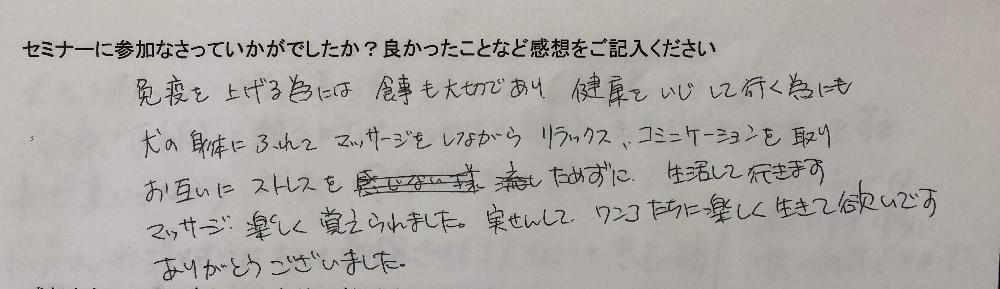 セミナーに参加なさっていかがでしたか？良かったことなど感想をご記入ください
免疫を上げる為には 食事も大切であり 健康をいじして行く為にも
犬の身体にふれて マッサージをしながら リラックス、コミニケーションを取り
お互いに ストレスを 感じない様 流し ためずに 生活して行きます
マッサージ 楽しく 覚えられました。実せんして ワンコたちに楽しく生きて欲いです
ありがとうございました。